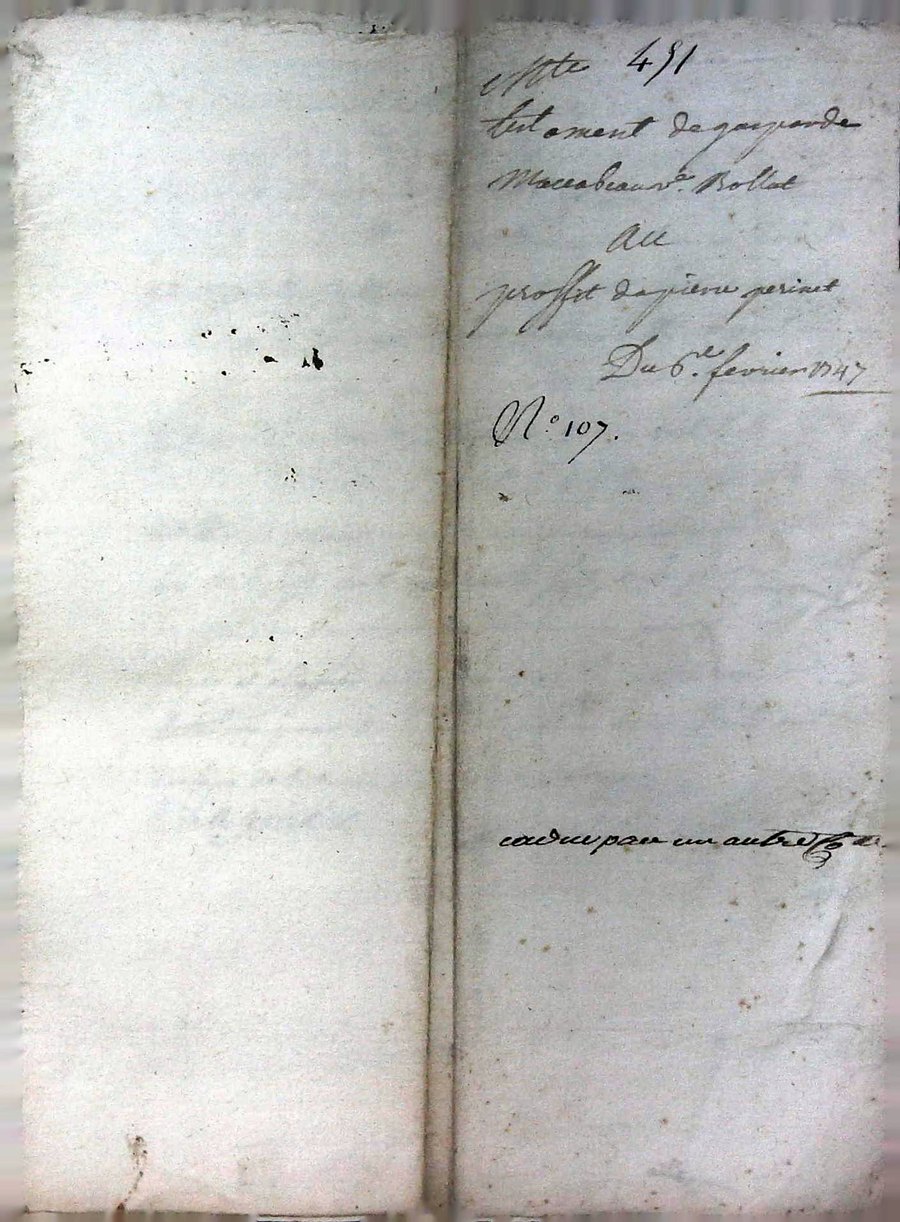 Cotte 491
testament de gasparde
Maccabeau v.e Bollat
au
proffit de pierre perinet
Du 6.e fevrier 1747
N.o 107.
caduc par un autre